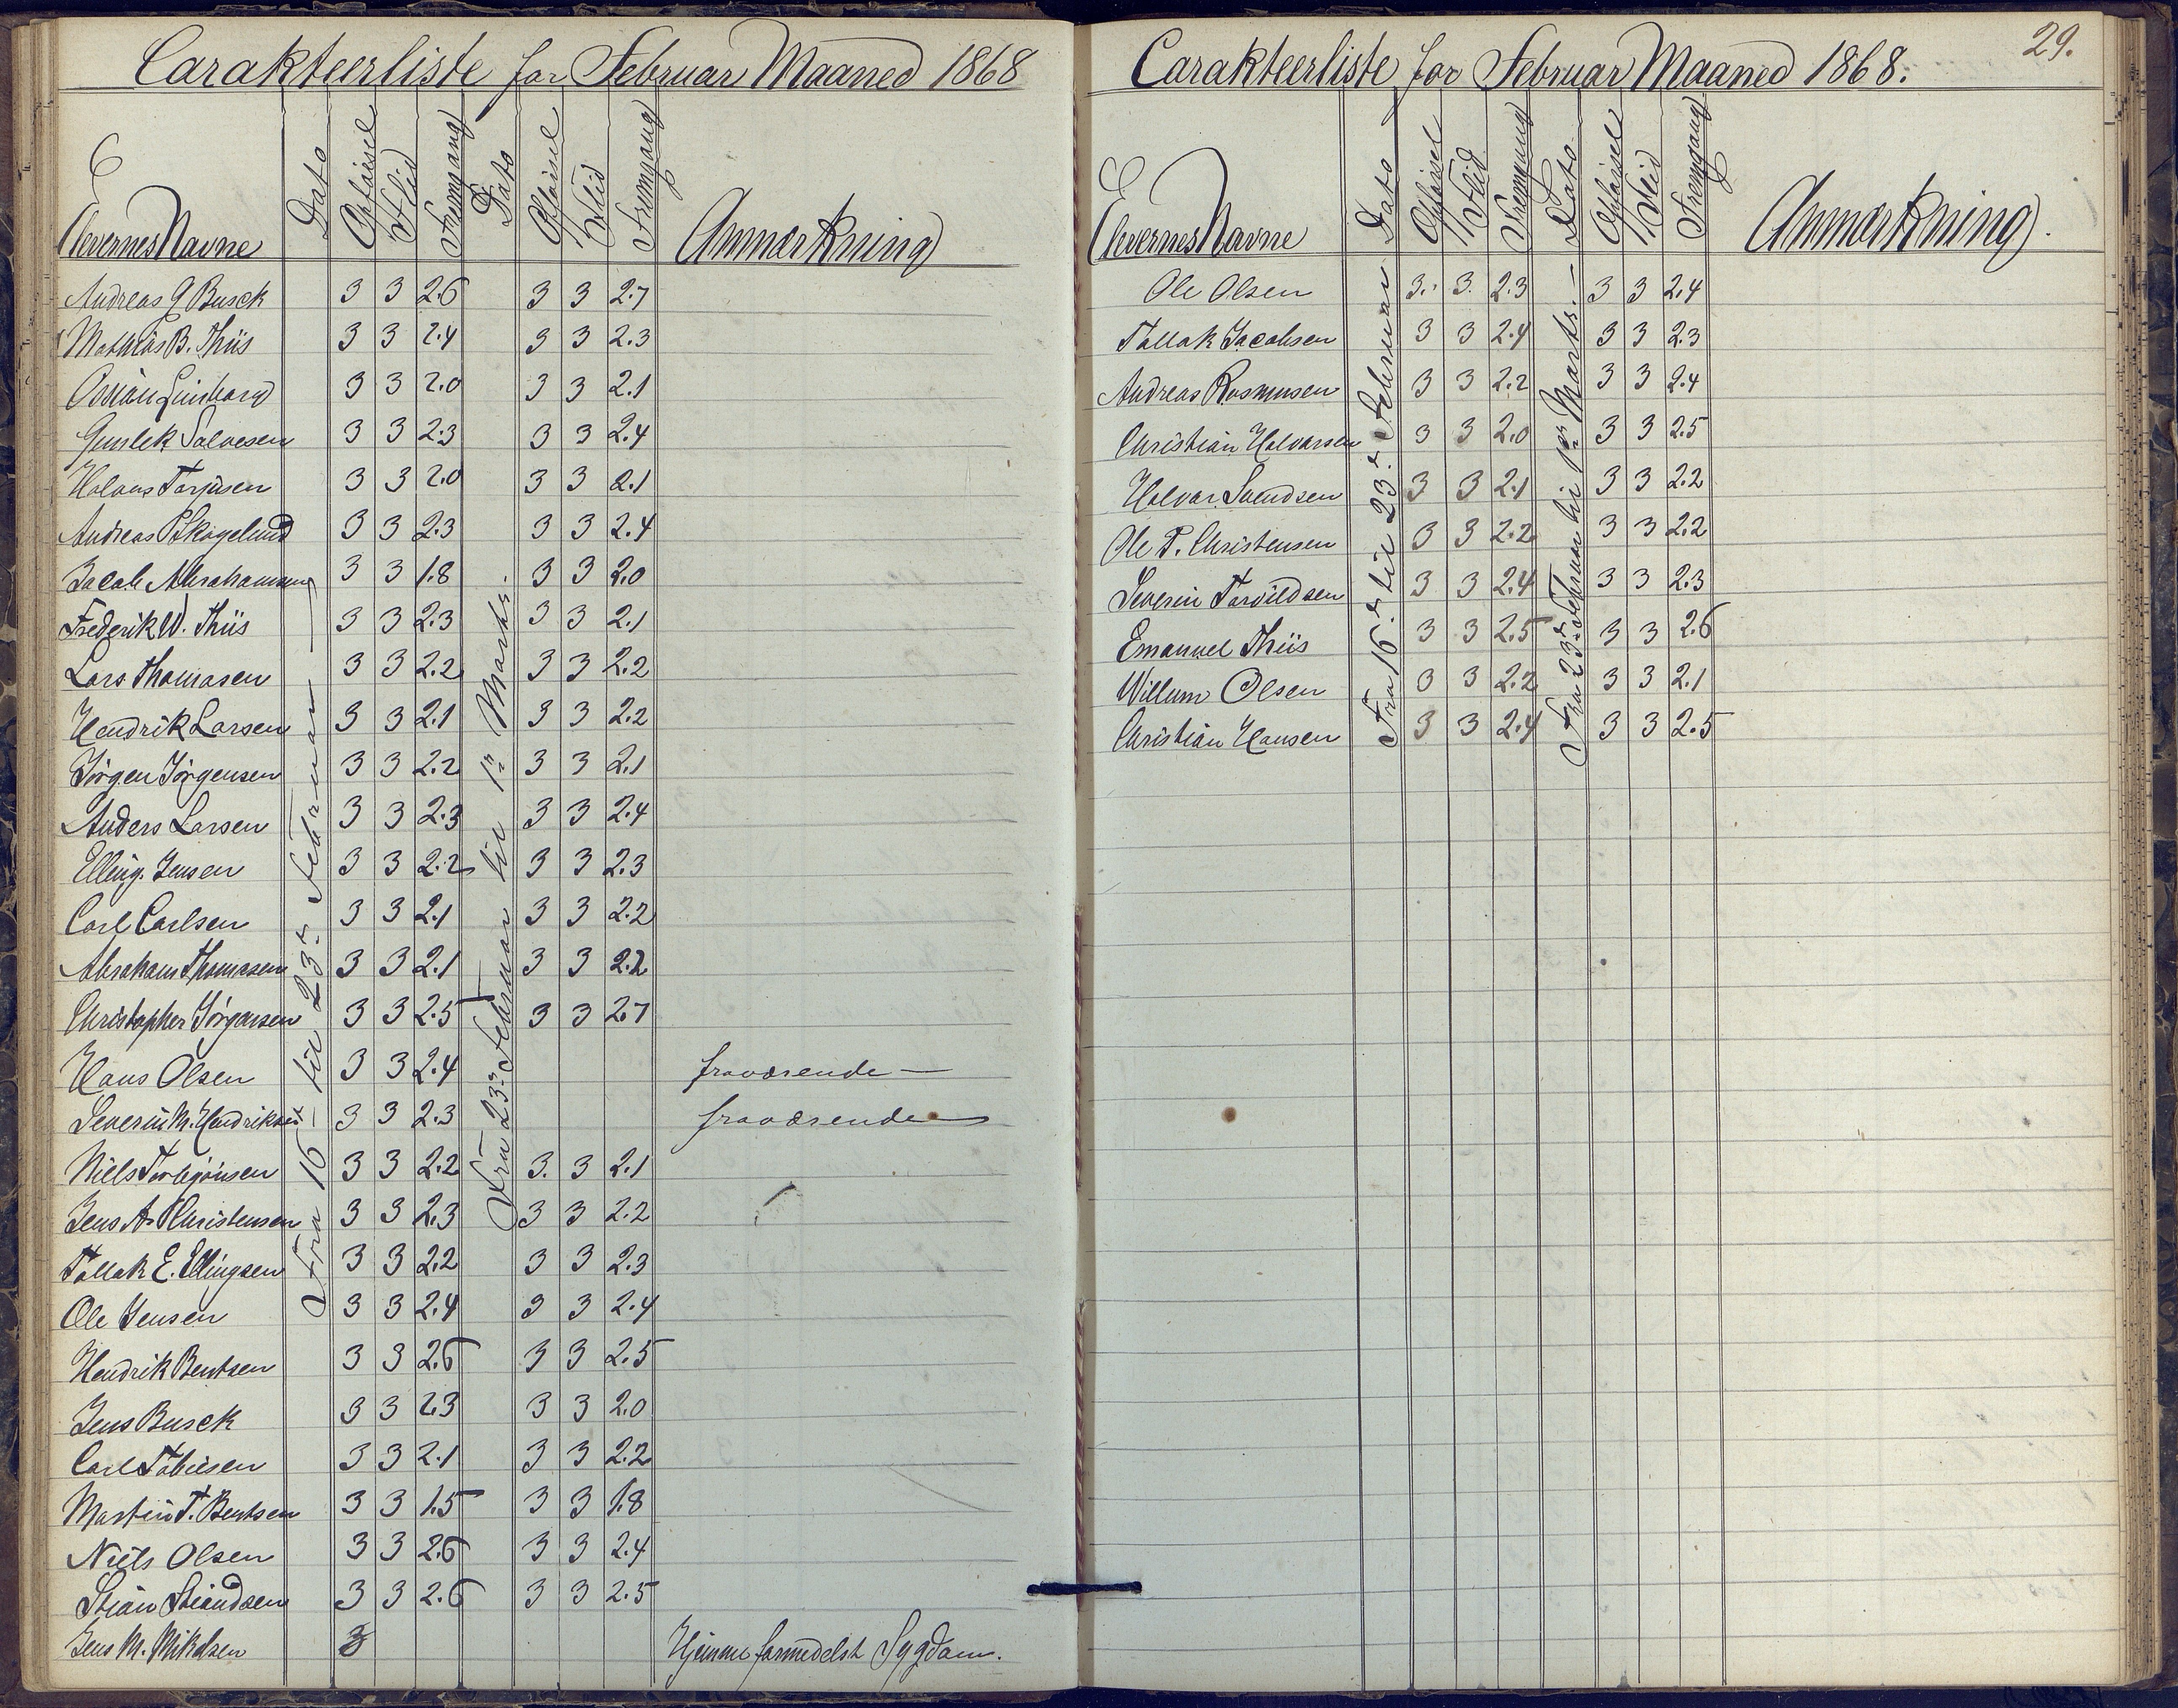 Carakteerliste for Februar Maaned 1868
Elevernes Navne Dato Opførsel Flid Fremgang Dato Opførsel Flid Fremgang Anmærkning
Fra 16 til 23de Februar
Fra 23de Februar til 1ste Marts.
Andreas G Busck 3 3 2.6 3 3 2.7
Mathias B. Thiis 3 3 2.4 3 3 2.3
3 3 2.0 3 3 2.1
Gunlek Salvesen 3 3 2.3 3 3 2.4
Halvor Torjusen 3 3 2.0 3 3 2.1
Andreas P Skogelund 3 3 2.3 3 3 2.4
Jacob Abrahamsen 3 3 1.8 3 3 2.0
Frederik W. Thiis 3 3 2.3 3 3 2.1
Lars Thomasen 3 3 2.2 3 3 2.2
Hendrik Larsen 3 3 2.1 3 3 2.2
Jörgen Jörgensen 3 3 2.2 3 3 2.1
Anders Larsen 3 3 2.3 3 3 2.4
Elling Jensen 3 3 2.2 3 3 2.3
Carl Carlsen 3 3 2.1 3 3 2.2
Abraham Thomasen 3 3 2.1 3 3 2.2
Christopher Jörgensen 3 3 2.5 3 3 2.7
Hans Olsen 3 3 2.4 fraværende —
Severin M. Hendriksen 3 3 2.3 fraværende
Niels Torbjönsen 3 3 2.2 3. 3 2.1
Jens A. Christensen 3 3 2.3 3 3 2.2
Tallak E. Ellingsen 3 3 2.2 3 3 2.3
Ole Jensen 3 3 2.4 3 3 2.4
Hendrik Bentsen 3 3 2.6 3 3 2.5
Jens Busck 3 3 2.3 3 3 2.0
Carl Tobiesen 3 3 2.1 3 3 2.2
Martin T. Bentsen 3 3 1.5 3 3 1.8
Niels Olsen 3 3 2.6 3 3 2.4
Stian Stiandsen 3 3 2.6 3 3 2.5
Jens M. Mikelsen 3 Hjemme formedelst Sygdom.
29.
Carakteerliste for Februar Maaned 1868.
Elevernes Navne Dato Opførsel Flid Fremgang Dato Opførsel Flid Fremgang Anmærkning.
Fra 16de til 23de Februar
Fra 23de Februar til 1ste Marts. —
Ole Olsen 3. 3. 2.3 3 3 2.4
Tallak Jacobsen 3 3 2.4 3 3 2.3
Andreas Rasmusen 3 3 2.2 3 3 2.4
Christian Halvorsen 3 3 2.0 3 3 2.5
Halvor Svendsen 3 3 2.1 3 3 2.2
Ole P. Christensen 3 3 2.2 3 3 2.2
Severin Tarvildsen 3 3 2.4 3 3 2.3
Emanuel Thiis 3 3 2.5 3 3 2.6
Willum Olsen 3 3 2.2 3 3 2.1
Christian Hansen 3 3 2.4 3 3 2.5